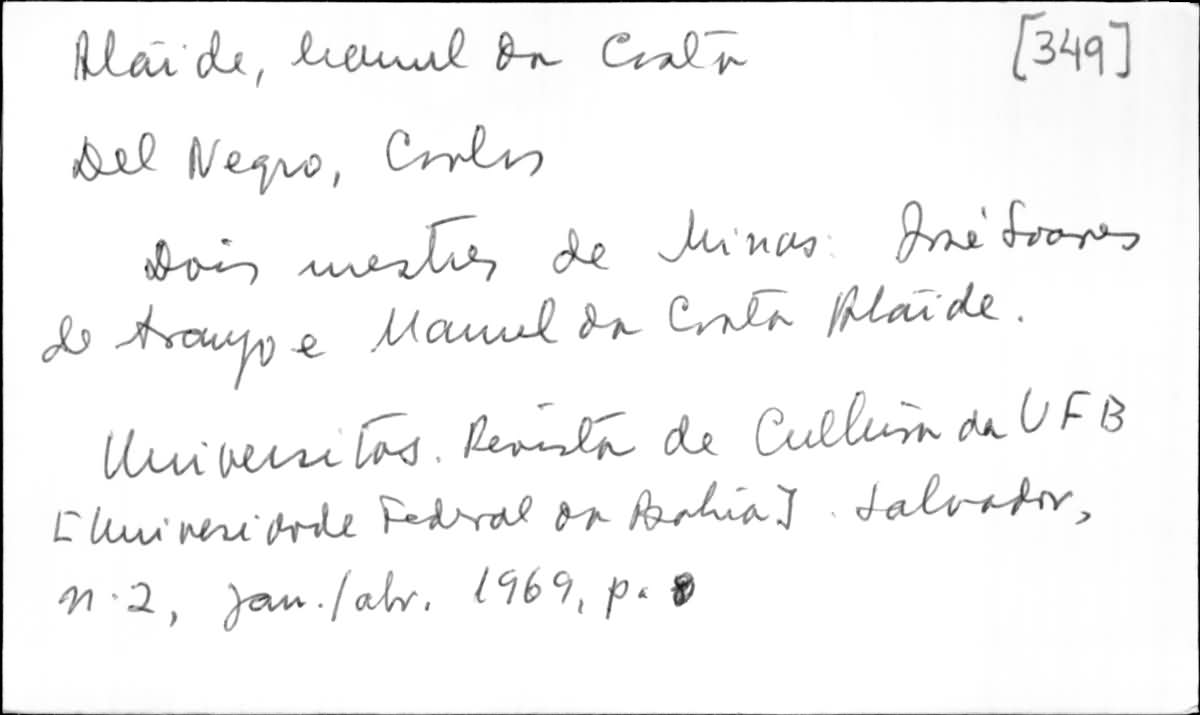 Ataíde, Manuel da Costa [349]
Del Negro, Carlos
Dois mestres de Minas: José Soares
de Araujo e Manuel da Costa Ataíde.
Universitas. Revista de Cultura da UFB
[Universidade Federal da Bahia]. Salvador,
n. 2, jan./abr. 1969, p. 8